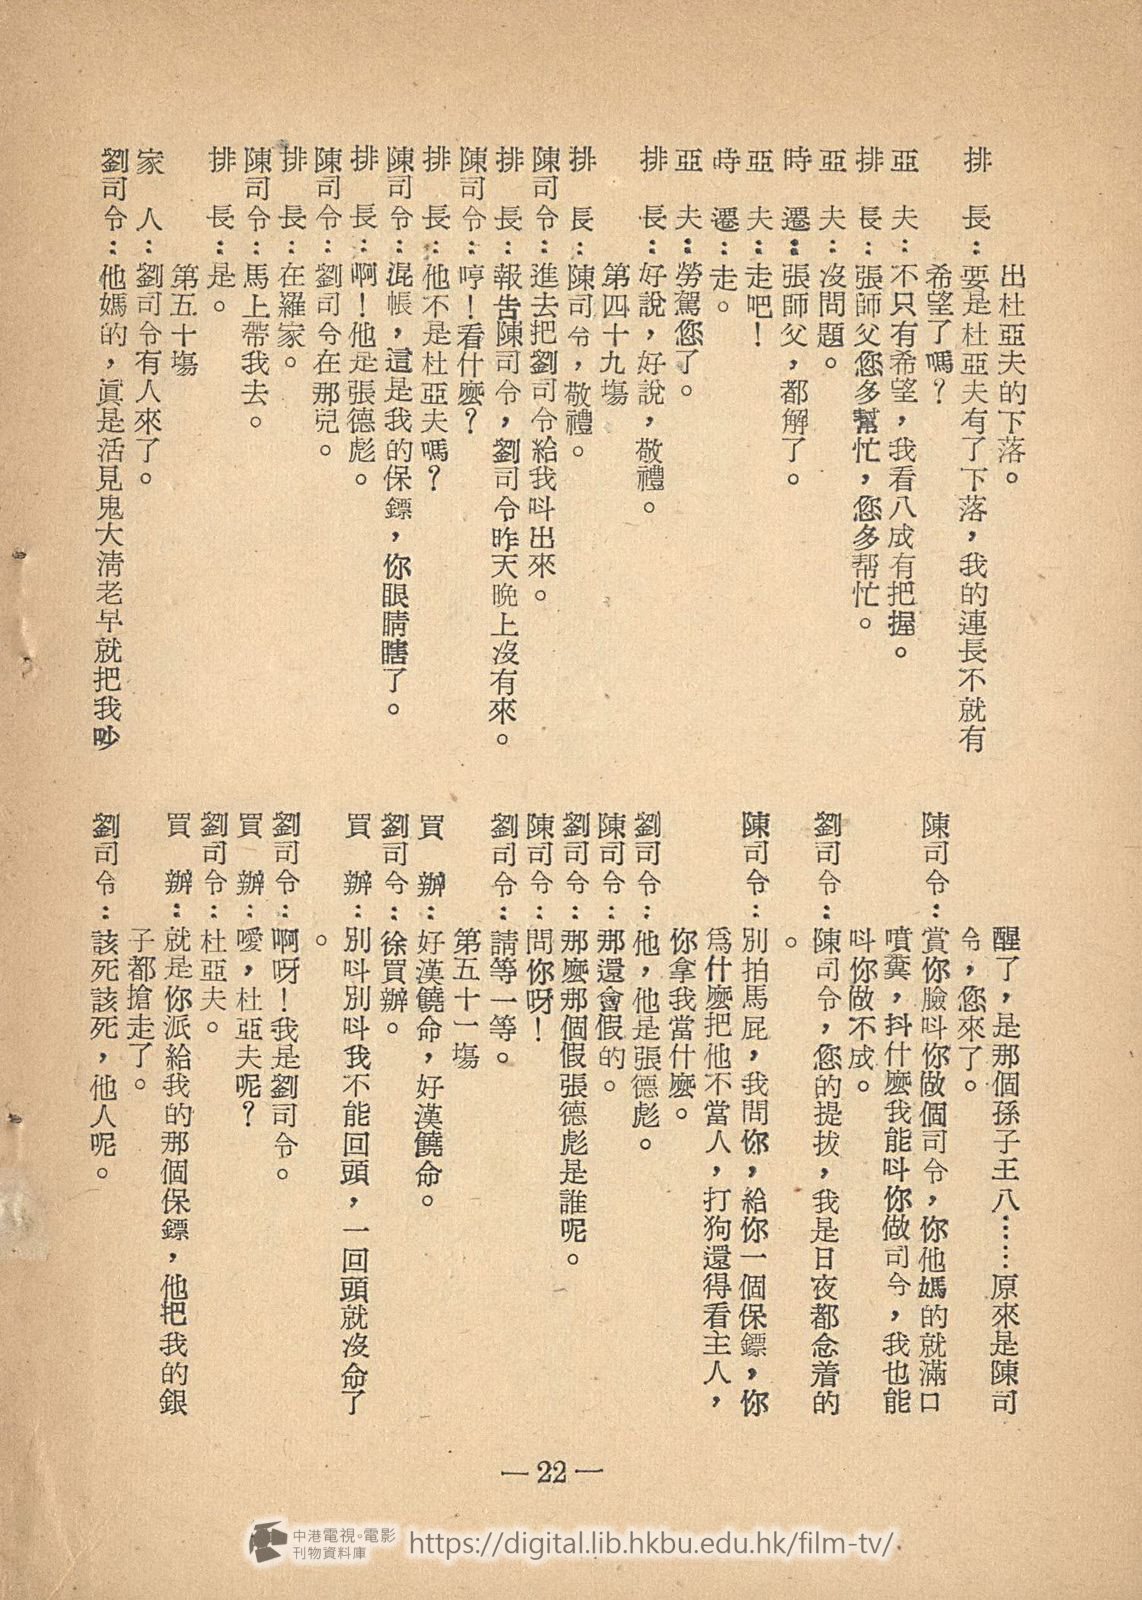 出杜亞夫的下落。
排　長：要是杜亞夫有了下落，我的連長不就有
希望了嗎？
亞　夫：不只有希望，我看八成有把握。
排　長：張師父您多幫忙，您多帮忙。
亞　夫：沒問題。
時　遷：張師父，都解了。
亞　夫：走吧！
時　遷：走。
亞　夫：勞駕您了。
排　長：好說，好說，敬禮。
第四十九場
排　長：陳司令，敬禮。
陳司令：進去把劉司令給我呌出來。
排　長：報告陳司令，劉司令昨天晚上沒有來。
陳司令：哼！看什麼？
排　長：他不是杜亞夫嗎？
陳司令：混帳，這是我的保鏢，你眼睛瞎了。
排　長：啊！他是張德彪。
陳司令：劉司令在那兒。
排　長：在羅家。
陳司令：馬上帶我去。
排　長：是。
第五十塲
家　人：劉司令有人來了。
劉司令：他媽的，眞是活見鬼大淸老早就把我吵
醒了，是那個孫子王八……原來是陳司
令，您來了。
陳司令：賞你臉呌你做個司令，你他媽的就滿口
噴糞，抖什麼我能呌你做司令，我也能
呌你做不成。
劉司令：陳司令，您的提拔，我是日夜都念着的
。
陳司令：別拍馬屁，我問你，給你一個保鏢，你
爲什麼把他不當人，打狗還得看主人，
你拿我當什麼。
劉司令：他，他是張德彪。
陳司令：那還會假的。
劉司令：那麼那個假張德彪是誰呢。
陳司令：問你呀！
劉司令：請等一等。
第五十一塲
買　辦：好漢饒命，好漢饒命。
劉司令：徐買辦。
買　辦：別呌別呌我不能回頭，一回頭就沒命了
。
劉司令：啊呀！我是劉司令。
買　辦：噯，杜亞夫呢？
劉司令：杜亞夫。
買　辦：就是你派給我的那個保鏢，他把我的銀
子都搶走了。
劉司令：該死該死，他人呢。
— 22 —
中港電視·電影
刊物資料庫
https://digital.lib.hkbu.edu.hk/film-tv/